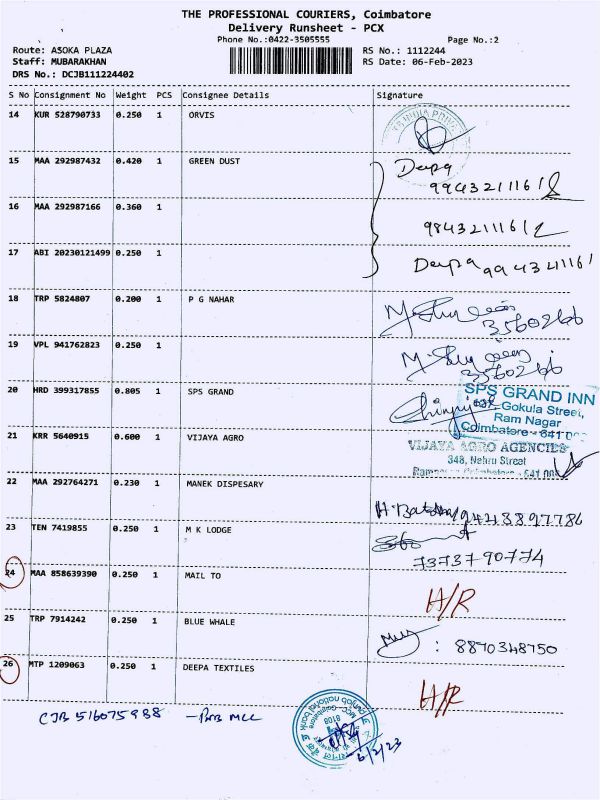 THE PROFESSIONAL COURIERS, Coimbatore
Delivery Runsheet - PCX
Phone No.:0422-3505555 Page No.:2
Route: ASOKA PLAZA RS No.: 1112244
Staff: MUBARAKHAN RS Date: 06-Feb-2023
DRS No.: DCJB111224402
S No Consignment No Weight PCS Consignee Details Signature
14 KUR 528790733 0.250 1 ORVIS
15 MAA 292987432 0.420 1 GREEN DUST Deepa
9943211161
16 MAA 292987166 0.360 1
9843211161
17 ABI 20230121499 0.250 1
Deepa 9943211161
18 TRP 5824807 0.200 1 P G NAHAR
3560266
19 VPL 941762823 0.250 1
3560266
20 HRD 399317855 0.805 1 SPS GRAND SPS GRAND INN
Gokula Street,
Ram Nagar
Coimbatore - 641
21 KRR 5640915 0.600 1 VIJAYA AGRO VIJAYA AGRO AGENCIES
348, Nehru Street
Coimbatore - 641
22 MAA 292764271 0.230 1 MANEK DISPESARY
23 TEN 7419855 0.250 1 M K LODGE
7373790774
24 MAA 858639390 0.250 1 MAIL TO H/R
25 TRP 7914242 0.250 1 BLUE WHALE : 8870348750
26 MTP 1209063 0.250 1 DEEPA TEXTILES H/R
CJB 516075988 - PNB MCC
punjab national bank
MCC Coimbatore
8108
6/2/23